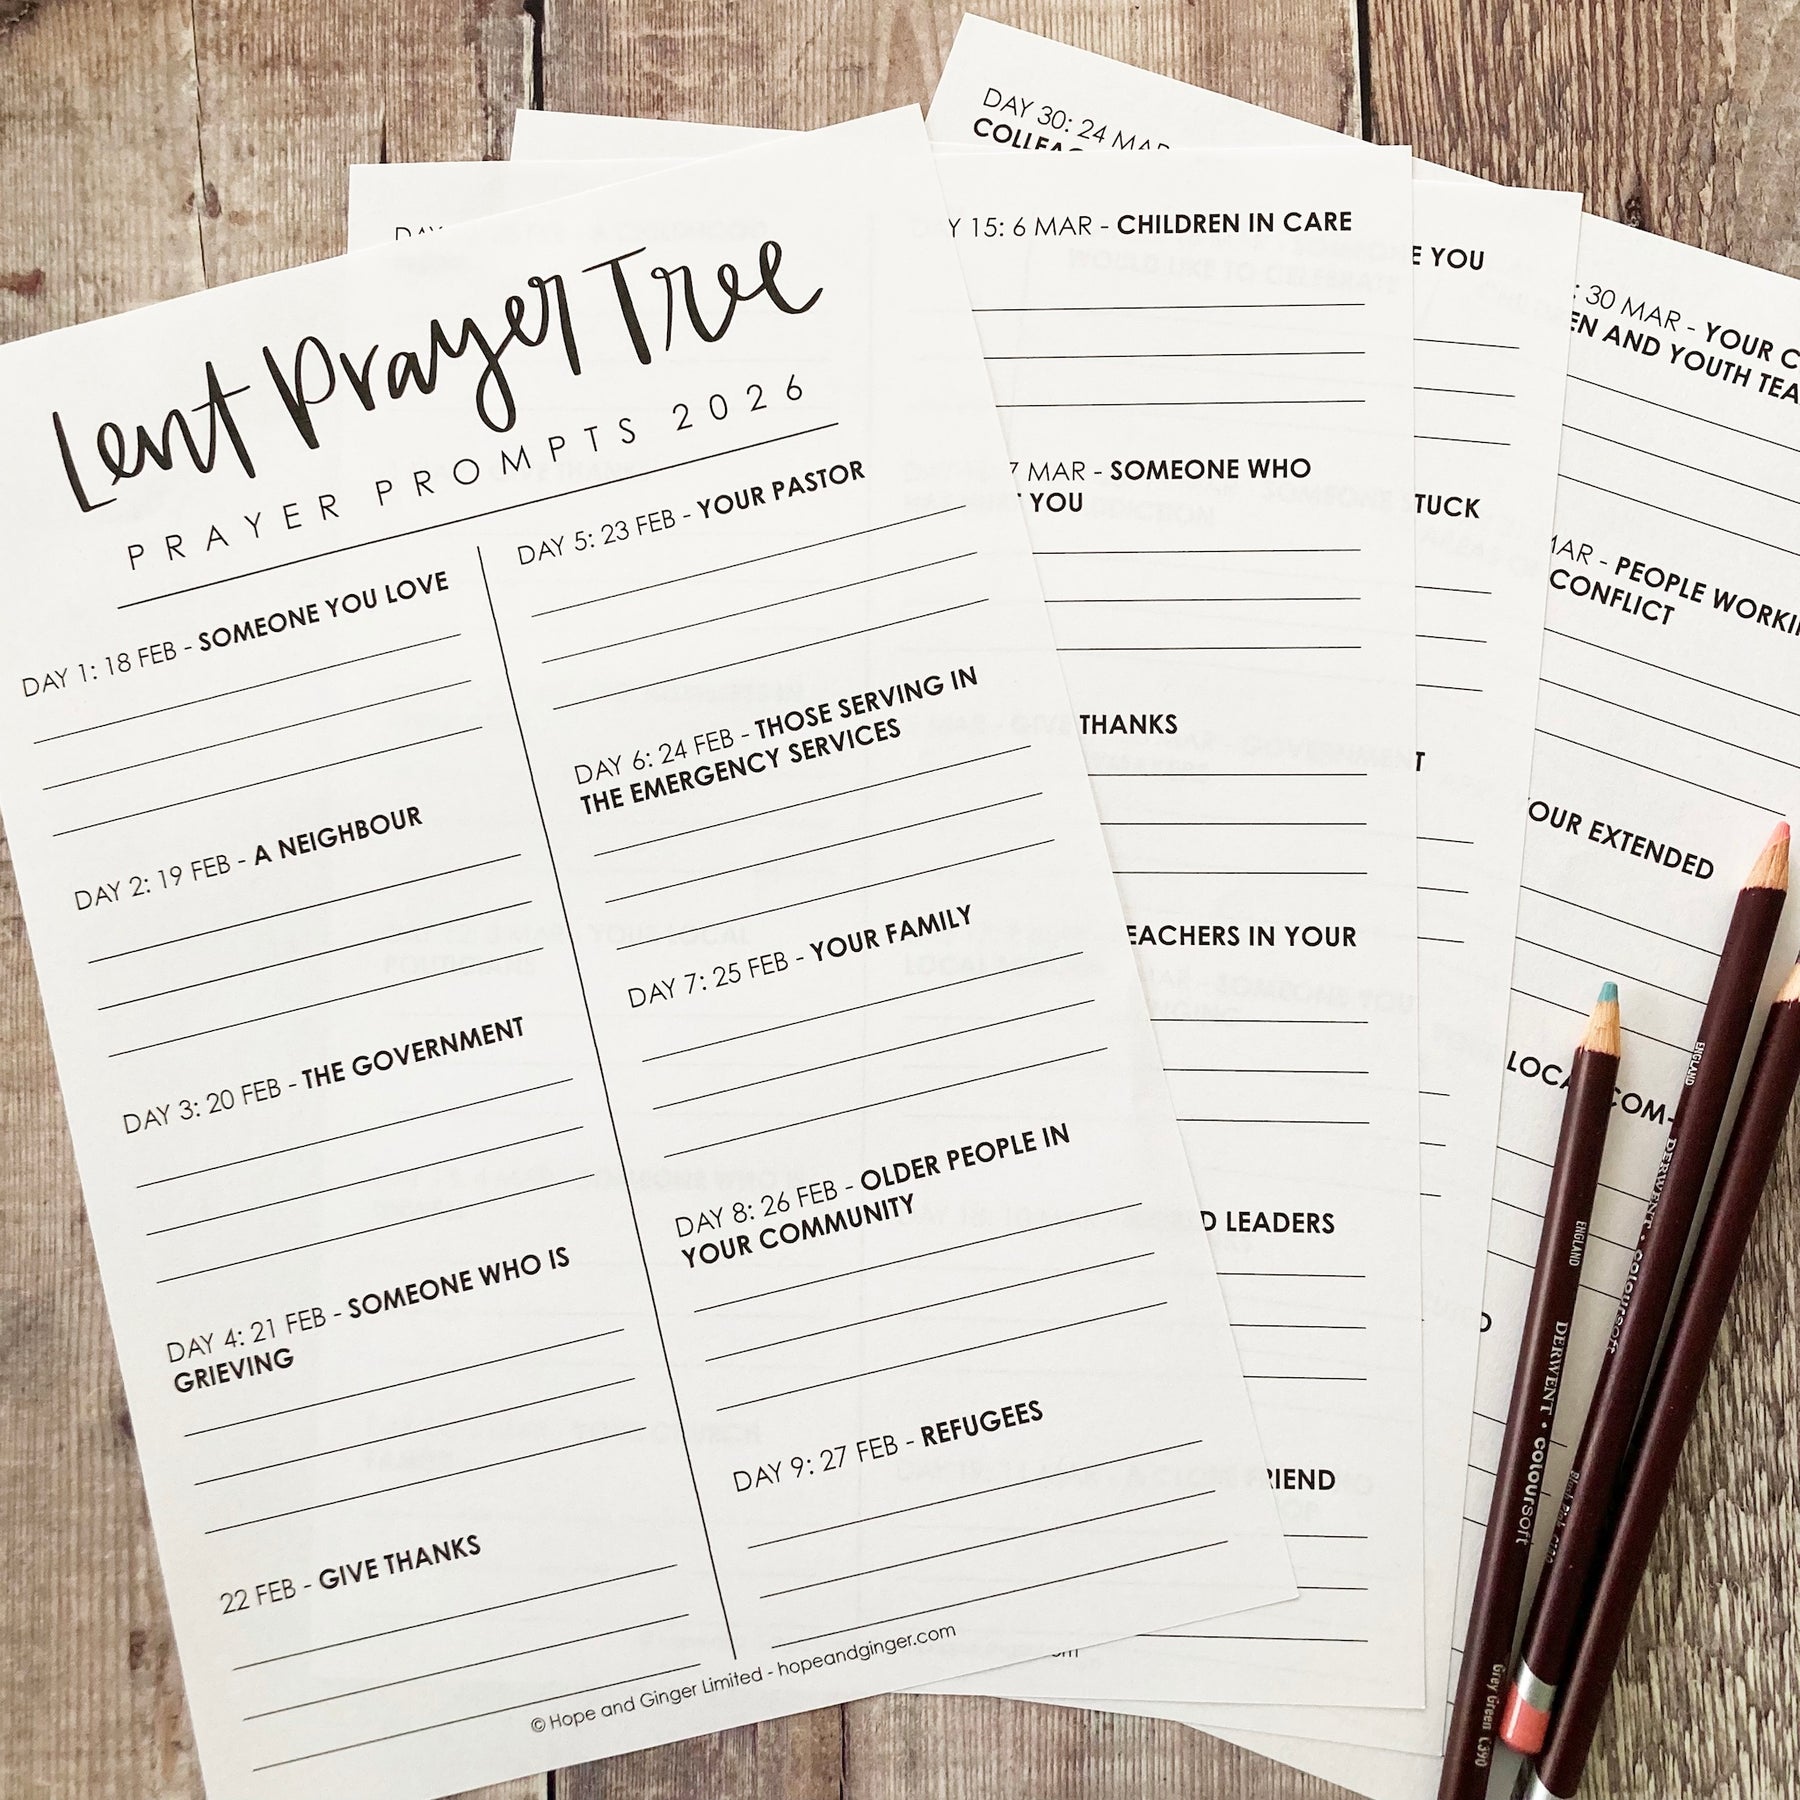 Lent Prayer Tree
PRAYER PROMPTS 2026
DAY 1: 18 FEB - SOMEONE YOU LOVE
DAY 2: 19 FEB - A NEIGHBOUR
DAY 3: 20 FEB - THE GOVERNMENT
DAY 4: 21 FEB - SOMEONE WHO IS
GRIEVING
22 FEB - GIVE THANKS
DAY 5: 23 FEB - YOUR PASTOR
DAY 6: 24 FEB - THOSE SERVING IN
THE EMERGENCY SERVICES
DAY 7: 25 FEB - YOUR FAMILY
DAY 8: 26 FEB - OLDER PEOPLE IN
YOUR COMMUNITY
DAY 9: 27 FEB - REFUGEES
© Hope and Ginger Limited - hopeandginger.com
DAY
15: 6 MAR - CHILDREN IN CARE
7 MAR - SOMEONE WHO
YOU
THANKS
EACHERS IN YOUR
D LEADERS
RIEND
E YOU
TUCK
T
D
DAY 30: 24 MAR
: 30 MAR - YOUR C
EN AND YOUTH TEA
MAR - PEOPLE WORKI
CONFLICT
OUR EXTENDED
LOCA COM-
ENGLAND
DERWENT • coloursoft
Grey Green C390
ENGLAND
DERWENT • coloursoft